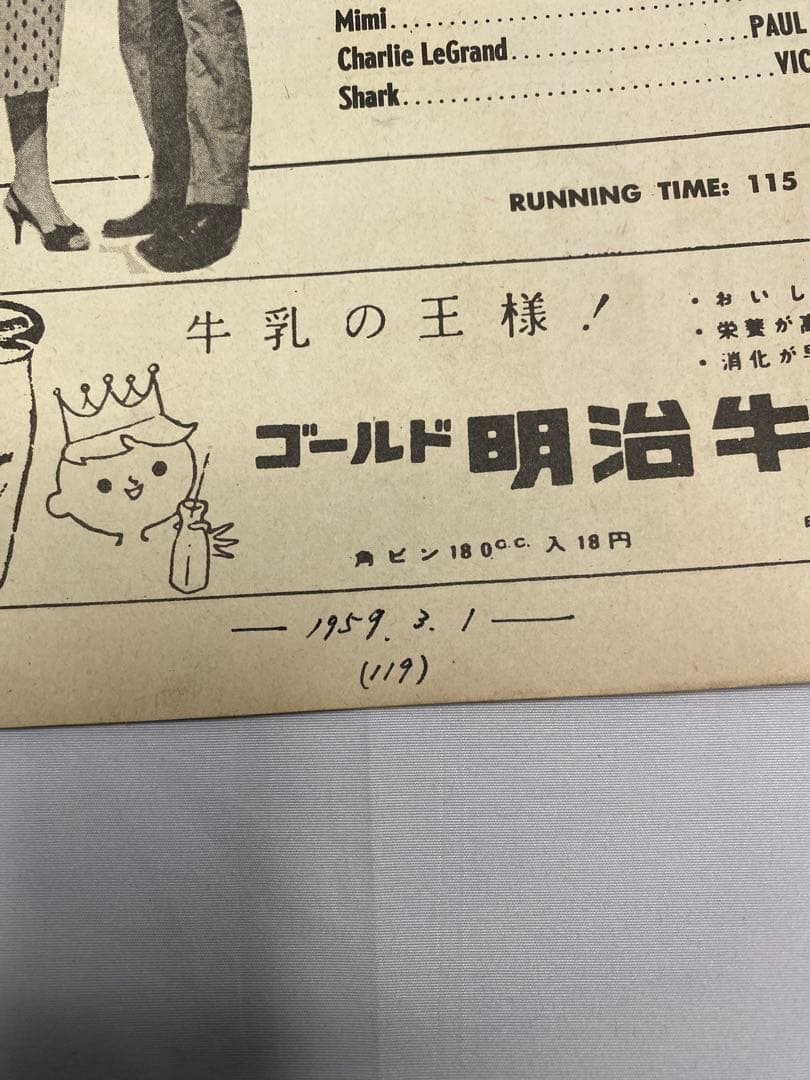 Mimi
Charlie LeGrand PAUL
Shark VIC
RUNNING TIME: 115
牛乳の王様！
・おいし
・栄養が高
・消化が早
ゴールド 明治牛
角ビン180c.c.入18円
— 1959. 3. 1 —
(119)